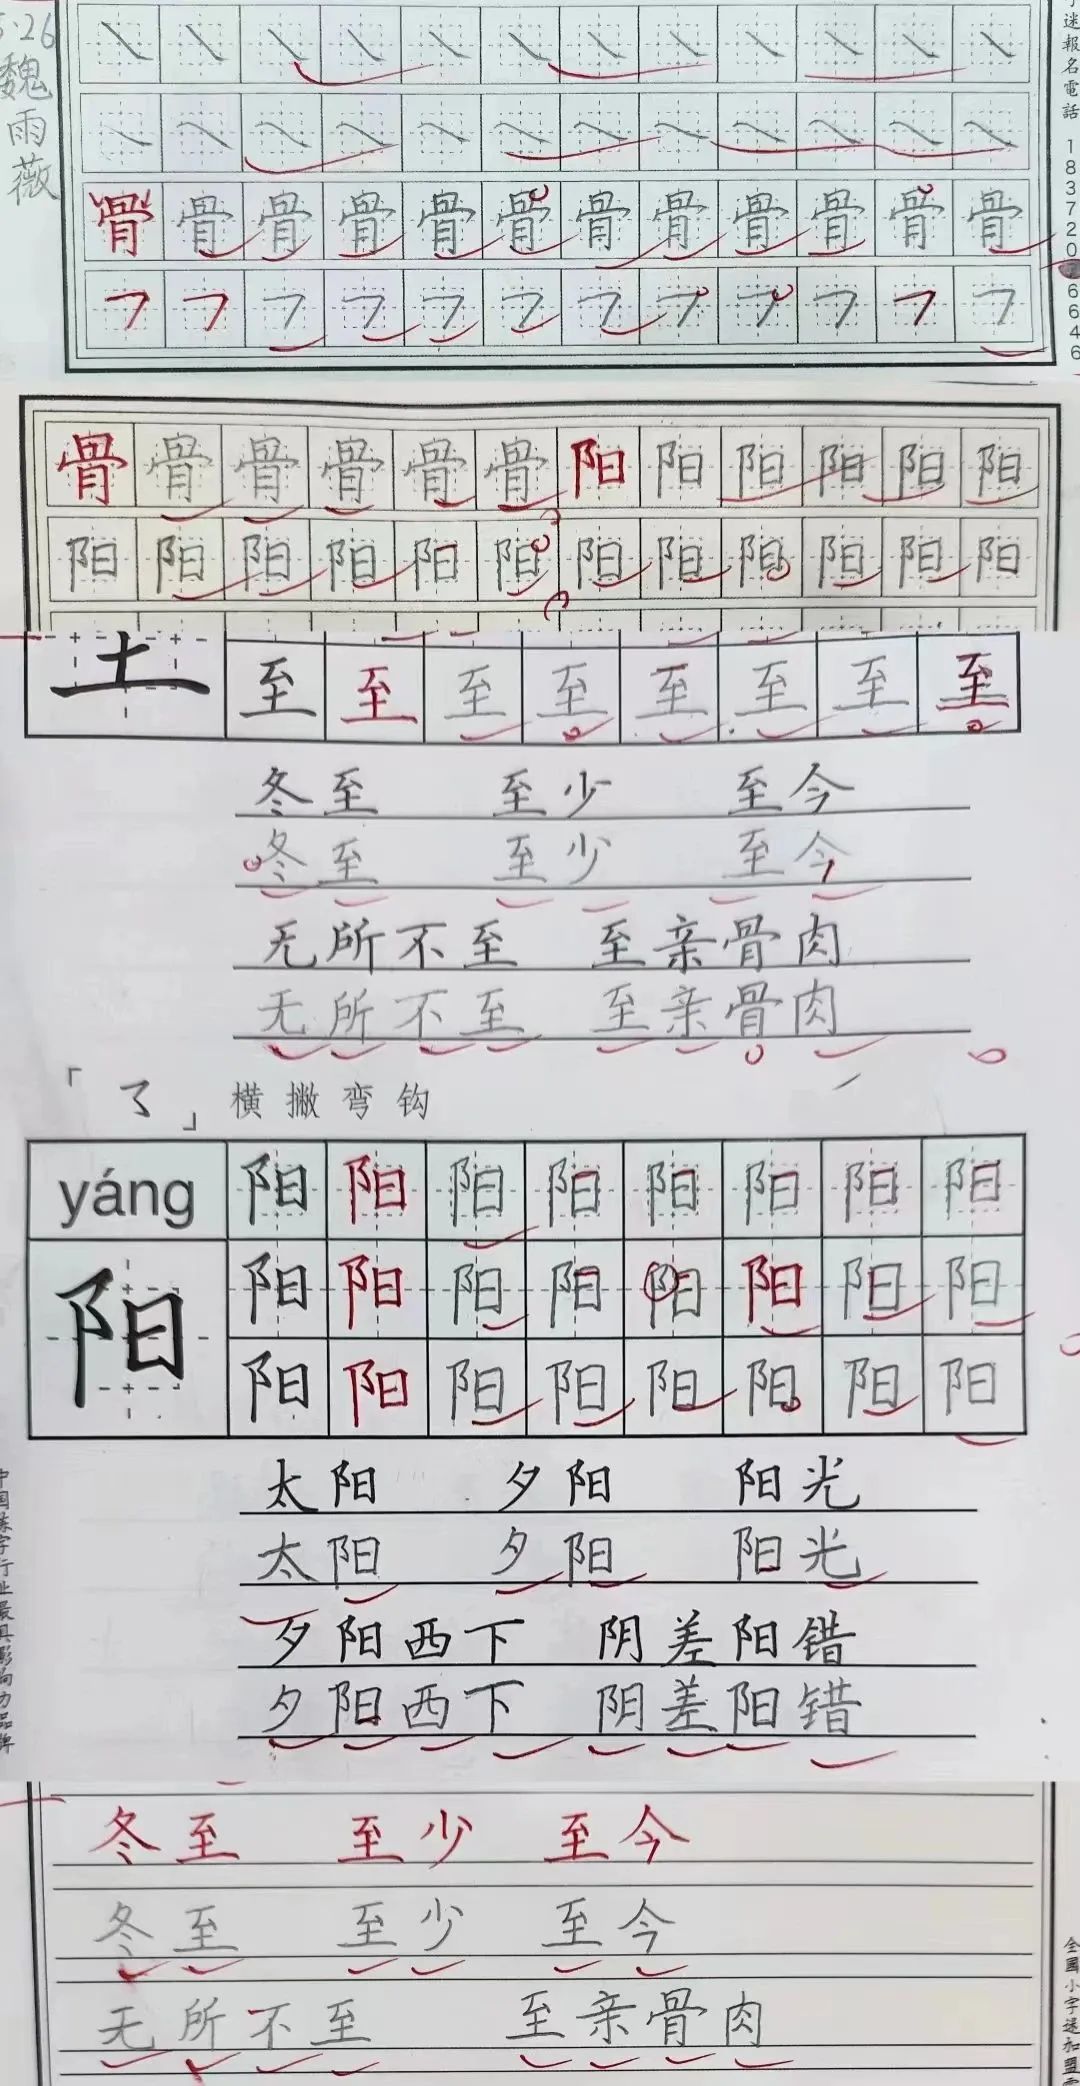 5.26
魏雨薇
字迷報名電話 18372066646
骨 骨 骨 骨 骨 骨 骨 骨 骨 骨 骨 骨
骨 骨 骨 骨 骨 骨 阳 阳 阳 阳 阳 阳
阳 阳 阳 阳 阳 阳 阳 阳 阳 阳 阳 阳
至 至 至 至 至 至 至 至
冬至 至少 至今
冬至 至少 至今
无所不至 至亲骨肉
无所不至 至亲骨肉
「㇌」 横撇弯钩
yáng 阳 阳 阳 阳 阳 阳 阳 阳
阳 阳 阳 阳 阳 阳 阳 阳 阳
阳 阳 阳 阳 阳 阳 阳 阳
太阳 夕阳 阳光
太阳 夕阳 阳光
夕阳西下 阴差阳错
夕阳西下 阴差阳错
中国练字行业最具影响力品牌
冬至 至少 至今
冬至 至少 至今
无所不至 至亲骨肉
全國小字迷加盟